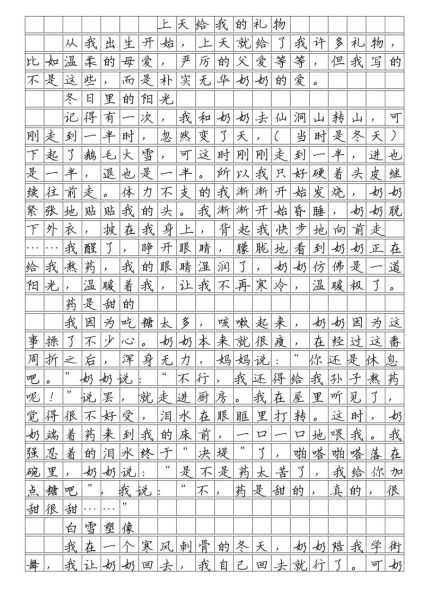 上天给我的礼物
从我出生开始，上天就给了我许多礼物，
比如温柔的母爱，严厉的父爱等等，但我写的
不是这些，而是朴实无华奶奶的爱。
冬日里的阳光
记得有一次，我和奶奶去仙洞山转山，可
刚走到一半时，忽然变了天，（当时是冬天）
下起了鹅毛大雪，可这时刚刚走到一半，进也
是一半，退也是一半。所以我只好硬着头皮继
续往前走。体力不支的我渐渐开始发烧，奶奶
紧张地贴贴我的头。我渐渐开始昏睡，奶奶脱
下外衣，披在我身上，背起我快步地向前走
……我醒了，睁开眼睛，朦胧地看到奶奶正在
给我熬药，我的眼睛湿润了，奶奶仿佛是一道
阳光，温暖着我，让我不再寒冷，温暖极了。
药是甜的
我因为吃糖太多，咳嗽起来，奶奶因为这
事操了不少心。奶奶本来就很瘦，在经过这番
周折之后，浑身无力，妈妈说：“你还是休息
吧。”奶奶说：“不行，我还得给我孙子熬药
呢！”说罢，就走进厨房。我在屋里听见了，
觉得很不好受，泪水在眼眶里打转。这时，奶
奶端着药来到我的床前，一口一口地喂我。我
强忍着的泪水终于“决堤”了，啪嗒啪嗒落在
碗里，奶奶说：“是不是药太苦了，我给你加
点糖吧”，我说：“不，药是甜的，真的，很
甜很甜……”
白雪塑像
我在一个寒风刺骨的冬天，奶奶陪我学街
舞，我让奶奶回去，我自己回去就行了。可奶